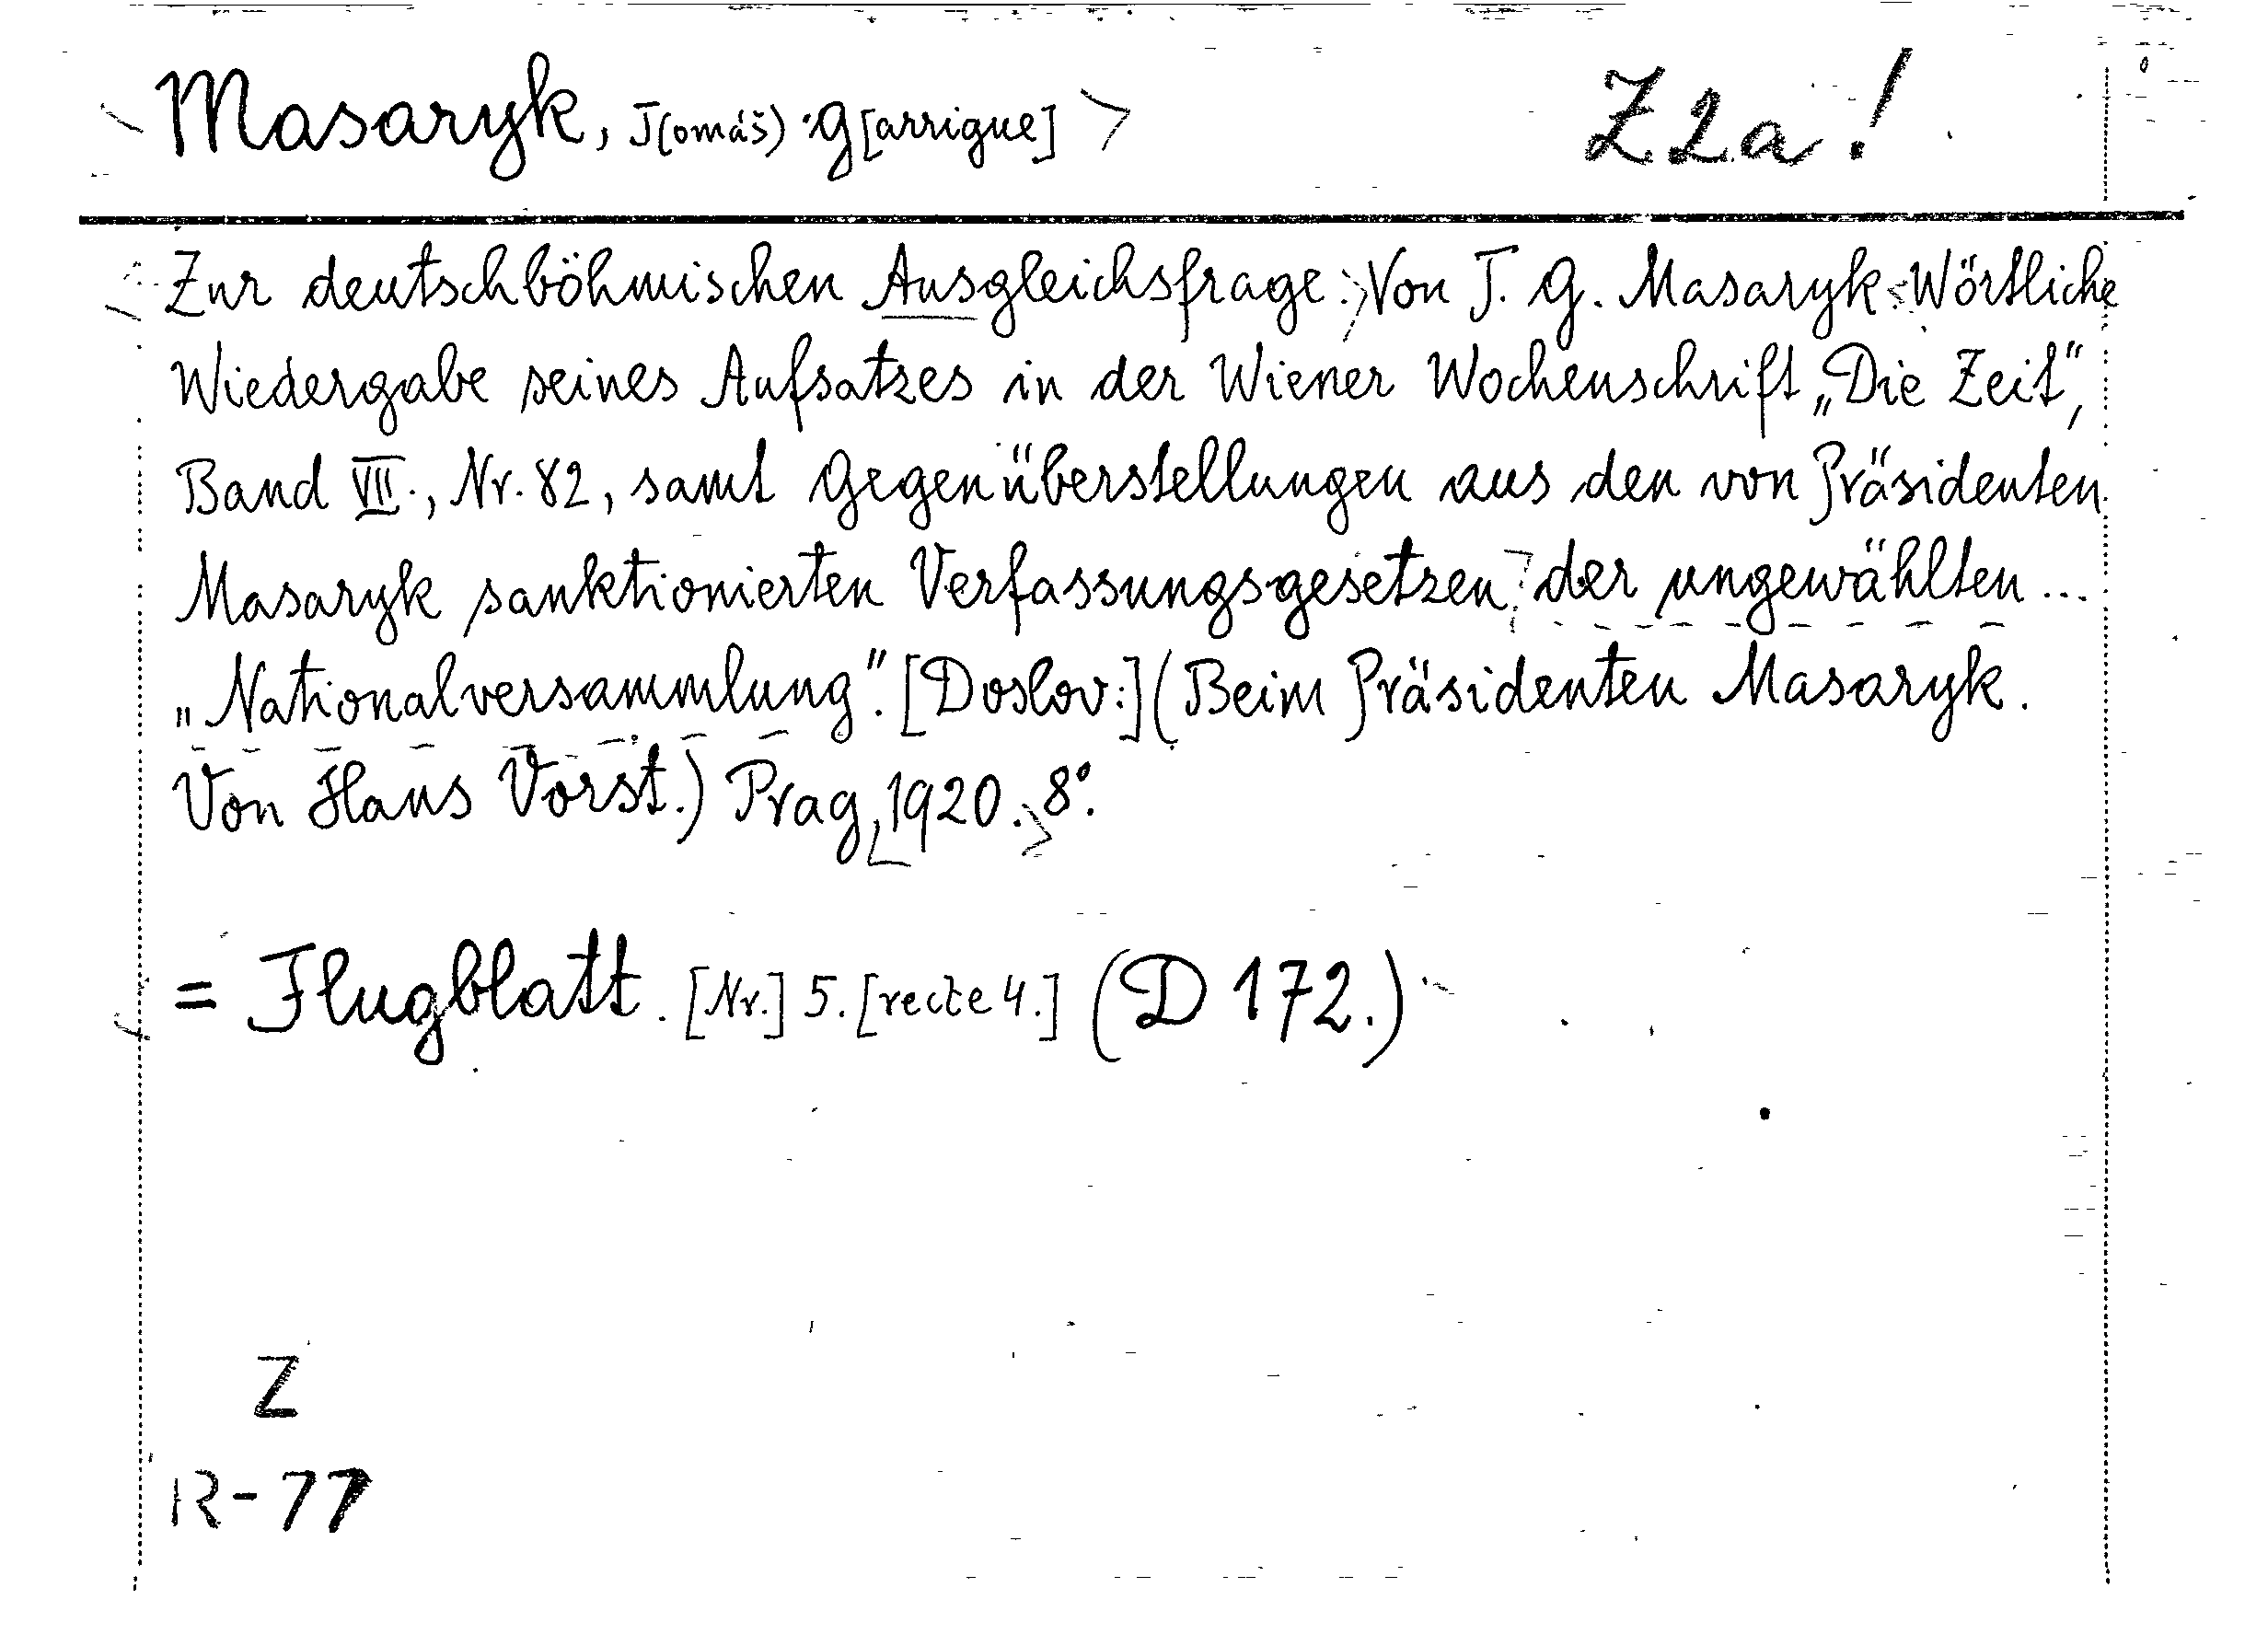 Masaryk, T(omáš) G[arrigue] Z2a!
Zur deutschböhmischen Ausgleichsfrage. Von T. G. Masaryk. Wörtliche
Wiedergabe seines Aufsatzes in der Wiener Wochenschrift „Die Zeit“,
Band VII., Nr. 82, samt Gegenüberstellungen aus den von Präsidenten
Masaryk sanktionierten Verfassungsgesetzen der ungewählten ...
„Nationalversammlung“. [Doslov:] (Beim Präsidenten Masaryk.
Von Hans Vorst.) Prag, 1920. 8°.
= Flugblatt. [Nr.] 5. [recte 4.] (D 172.)
Z
R-77